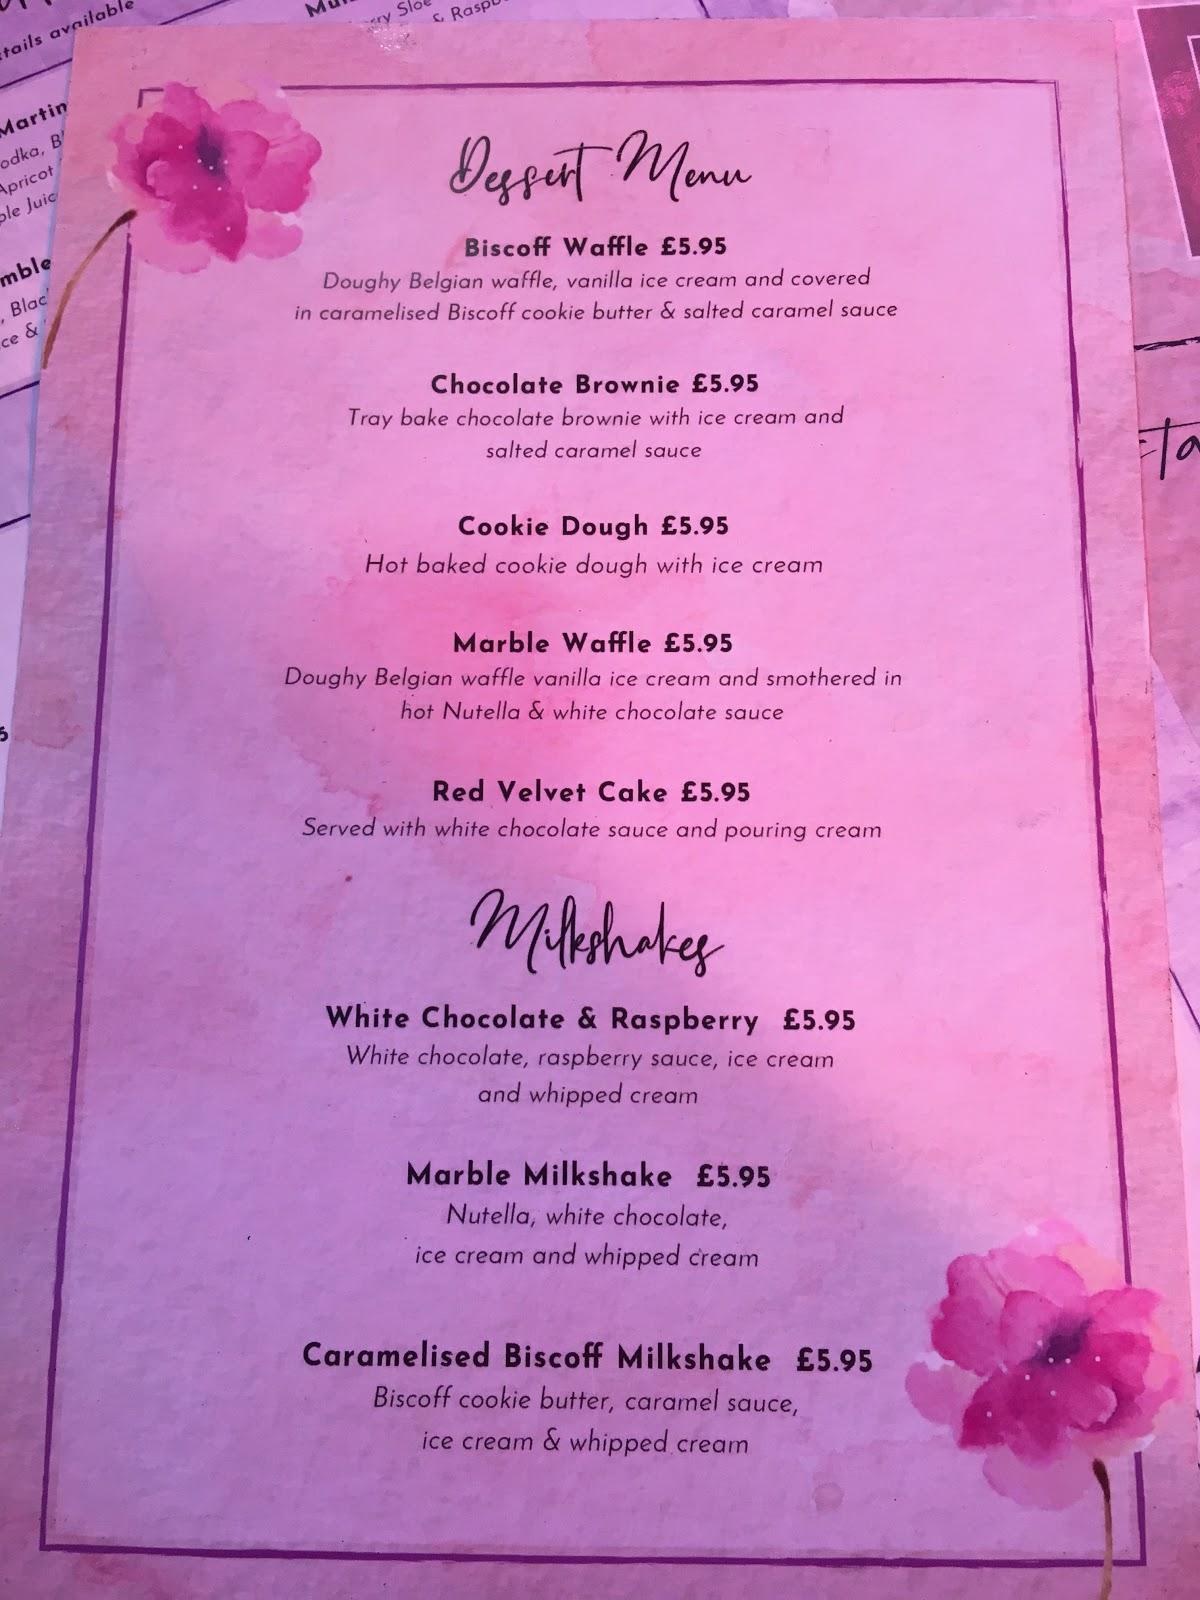 tails available
Dessert Menu
Biscoff Waffle £5.95
Doughy Belgian waffle, vanilla ice cream and covered
in caramelised Biscoff cookie butter & salted caramel sauce
Chocolate Brownie £5.95
Tray bake chocolate brownie with ice cream and
salted caramel sauce
Cookie Dough £5.95
Hot baked cookie dough with ice cream
Marble Waffle £5.95
Doughy Belgian waffle vanilla ice cream and smothered in
hot Nutella & white chocolate sauce
Red Velvet Cake £5.95
Served with white chocolate sauce and pouring cream
Milkshakes
White Chocolate & Raspberry £5.95
White chocolate, raspberry sauce, ice cream
and whipped cream
Marble Milkshake £5.95
Nutella, white chocolate,
ice cream and whipped cream
Caramelised Biscoff Milkshake £5.95
Biscoff cookie butter, caramel sauce,
ice cream & whipped cream